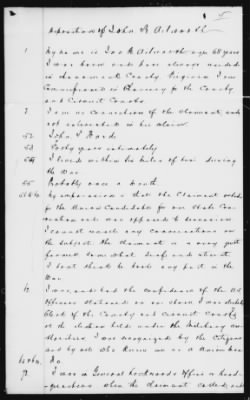 5
Deposition of John R Ailworth
1 My name is John R Ailworth age 68 years
I was born and have always resided
in Accomack County Virginia I am
Commissioner in Chancery for the County
and Circuit Courts.
2 I am no Connection of the Claimant and
not interested in his claim
52 John T Hards
53 Forty years intimately
54 I lived within six miles of him during
the War.
55 Probably once a month
My impression is that the Claimant voted
for the Union Candidate for our State Con-
vention and was opposed to secession
I cannot recall any conversations on
the subject. The claimant is a very quiet
farmer, somewhat deaf and silent.
I don't think he took any part in the
War.
I was, and had the confidence of the US
Officers stationed on our shore. I was
Clerk of the County and Circuit Courts
at the election held under the Military
I was recognized by the Citizens
and by all who knew me as a Union man
No
I was in General Lockwoods Office or head-
quarters when the claimant called, and